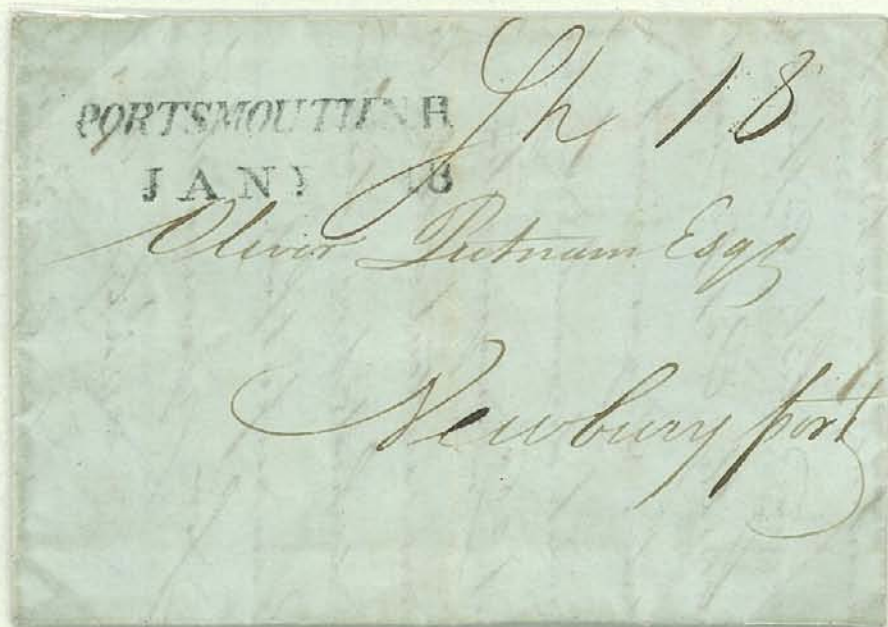 PORTSMOUTH N.H.
Sh 18
JANY 18
Oliver Putnam Esqr
Newbury port